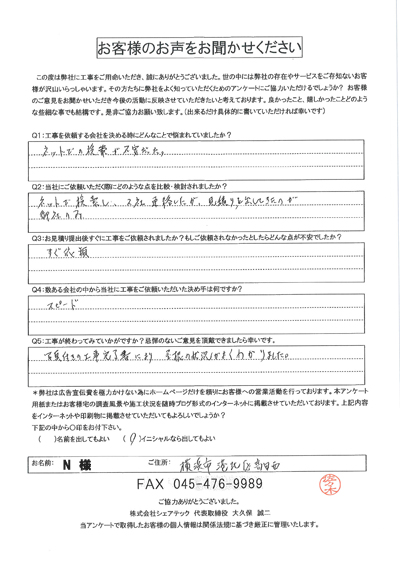 お客様のお声をお聞かせください
この度は弊社に工事をご用命いただき、誠にありがとうございました。世の中には弊社の存在やサービスをご存知ないお客
様が沢山いらっしゃいます。その方たちに弊社をよく知っていただくためのアンケートにご協力いただけるでしょうか? お客様
のご意見をお聞かせいただき今後の活動に反映させていただきたいと考えております。良かったこと、嬉しかったことどのよう
な些細な事でも結構です。是非ご協力お願い致します。(出来るだけ具体的に書いていただければ幸いです)
Q1:工事を依頼する会社を決める時にどんなことで悩まれていましたか?
ネットでの検索が不安だった。
Q2:当社にご依頼いただく際にどのような点を比較・検討されましたか?
ネットで検索し、2社連絡したが、見積りを出してきたのが
御社のみ
Q3:お見積り提出後すぐに工事をご依頼されましたか?もしご依頼されなかったとしたらどんな点が不安でしたか?
すぐ依頼
Q4:数ある会社の中から当社に工事をご依頼いただいた決め手は何ですか?
スピード
Q5:工事が終わってみていかがですか?忌憚のないご意見を頂戴できましたら幸いです。
写真付きの工事完了書により 屋根の状況がよくわかりました。
*弊社は広告宣伝費を極力かけない為にホームページだけを頼りにお客様への営業活動を行っております。本アンケート
用紙またはお客様宅の調査風景や施工状況を随時ブログ形式のインターネットに掲載させていただいております。上記内容
をインターネットや印刷物に掲載させていただいてもよろしいでしょうか?
下記の中から○印をお付下さい。
( )名前を出してもよい (○)イニシャルなら出してもよい
お名前: N 様 ご住所: 横浜市港北区高田西
FAX 045-476-9989
ご協力ありがとうございました。
株式会社シェアテック 代表取締役 大久保 誠二
当アンケートで取得したお客様の個人情報は関係法規に基づき厳正に管理いたします。
佐々木